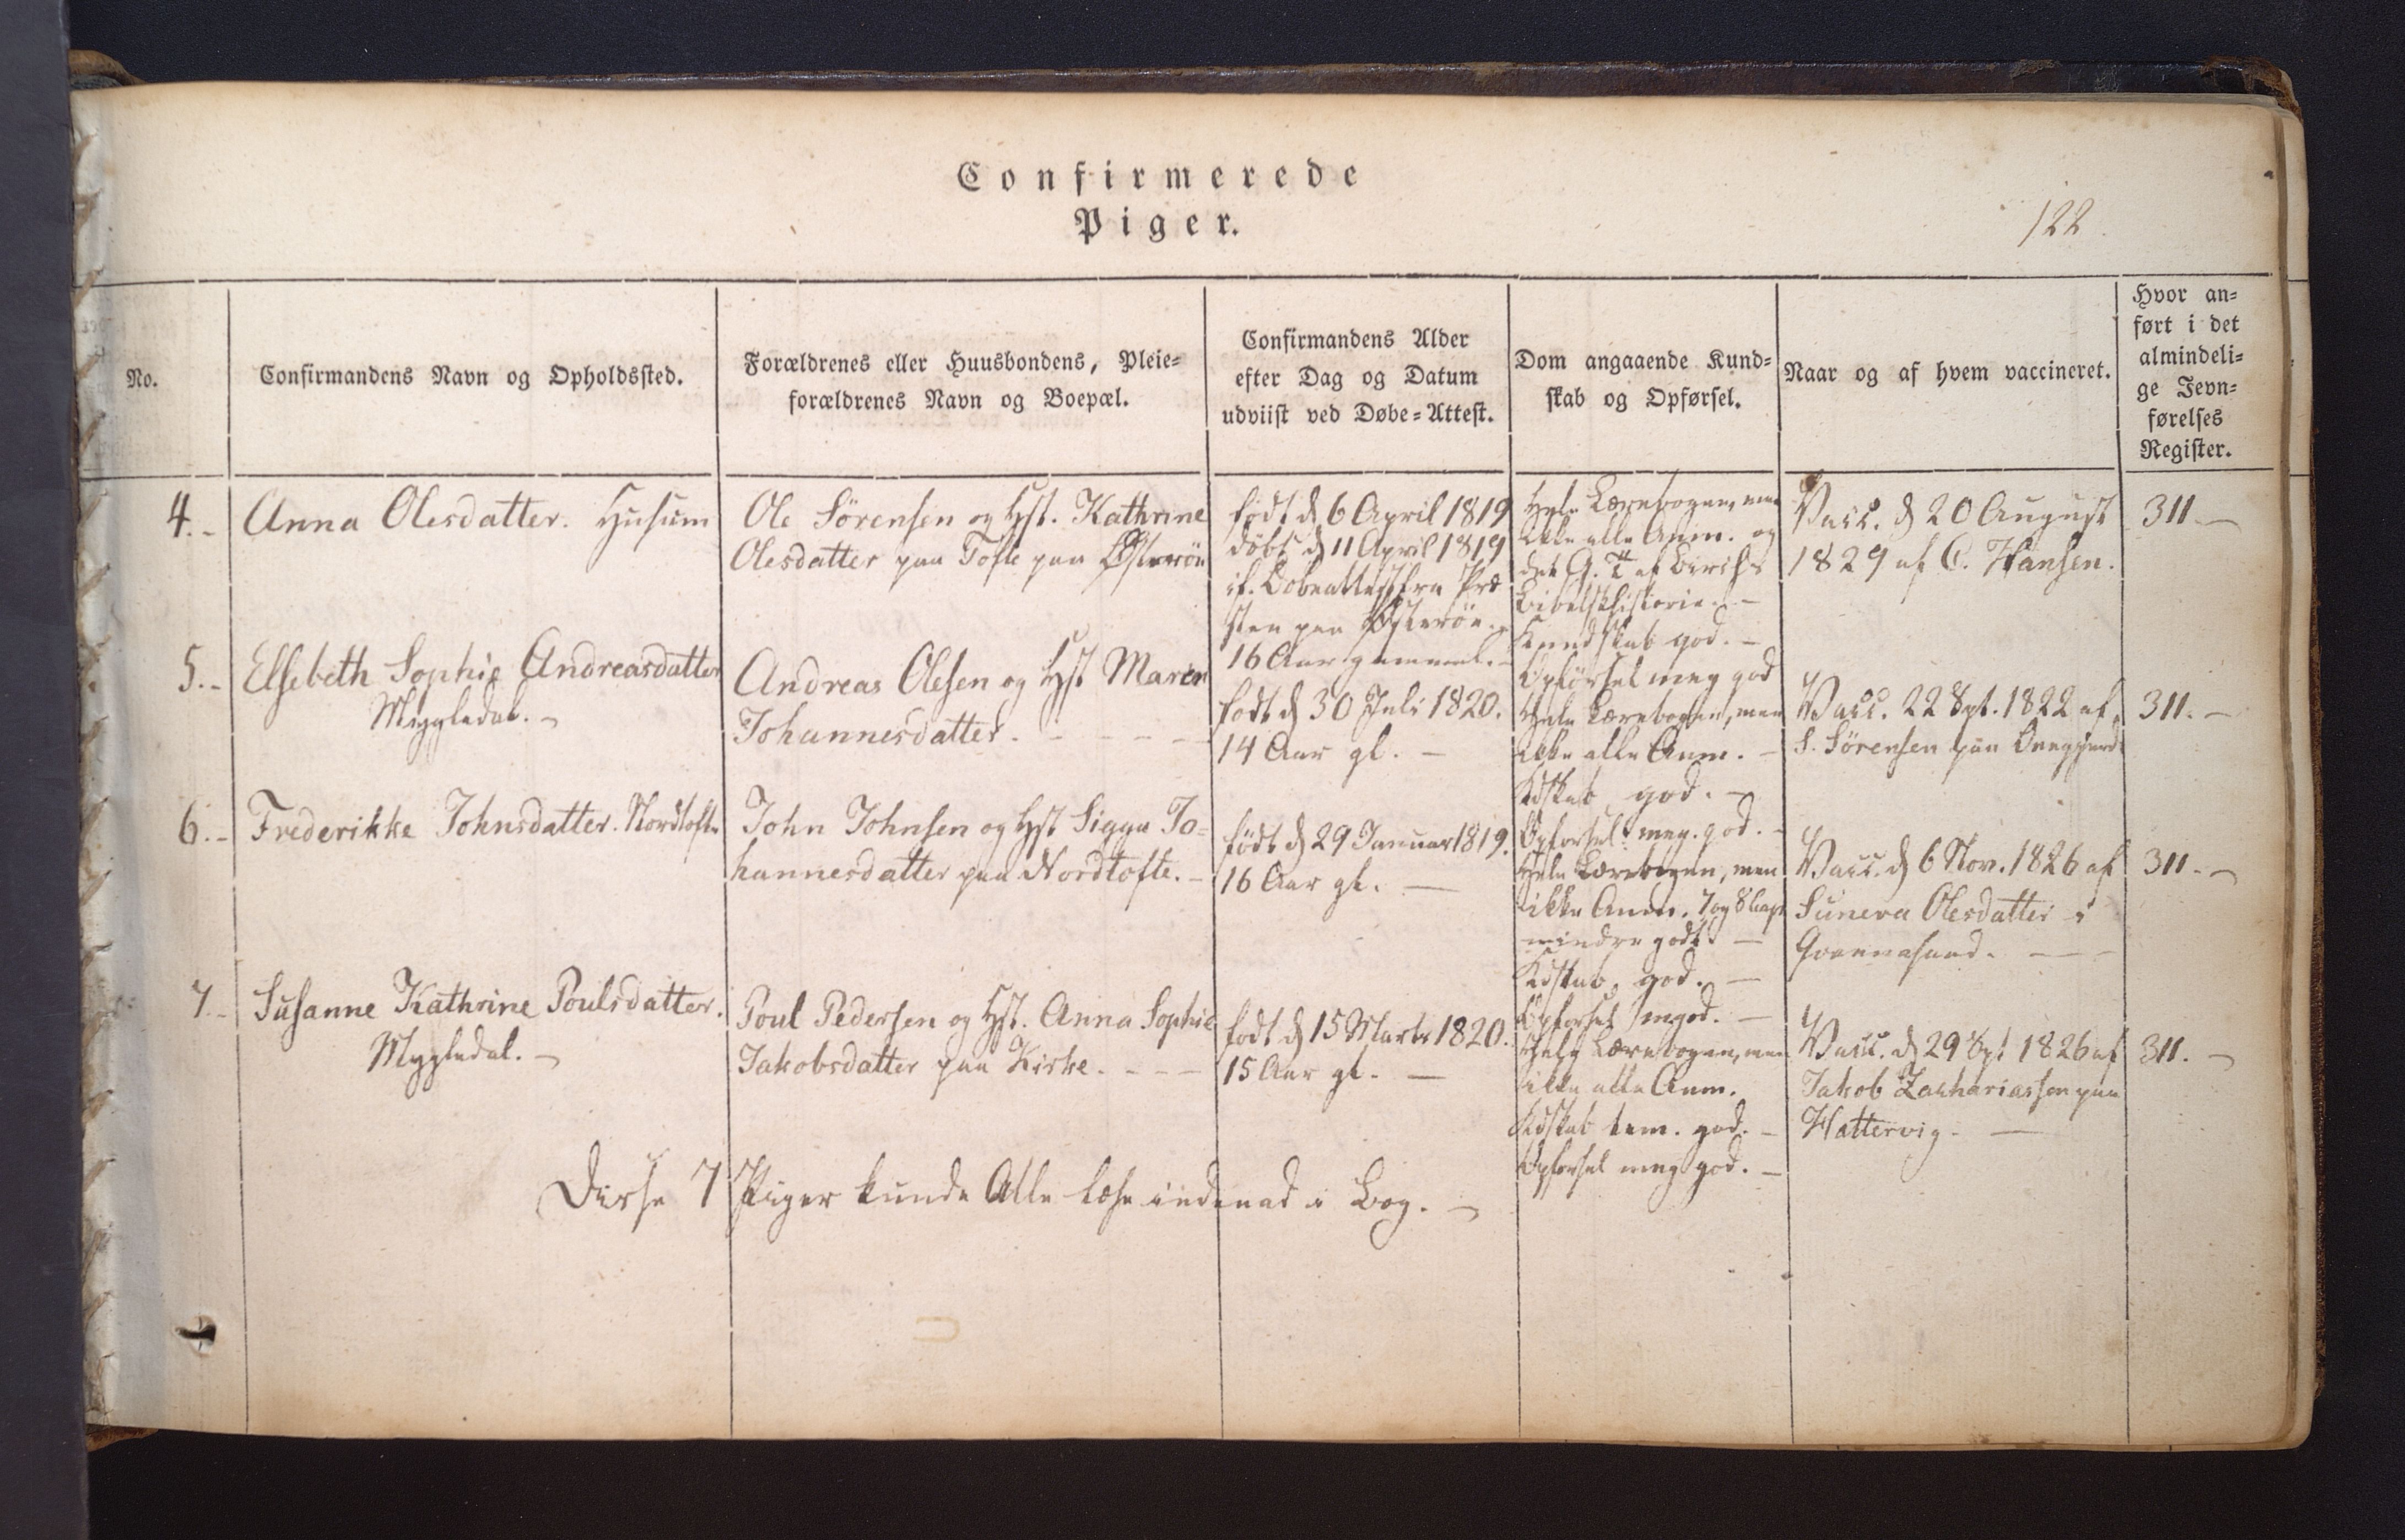 Confirmerede
Piger.
122.
No.
Confirmandens Navn og Opholdssted.
Forældrenes eller Huusbondens, Pleie=
forældrenes Navn og Boepæl.
Confirmandens Alder
efter Dag og Datum
udviist ved Døbe=Attest.
Dom angaaende Kund=
skab og Opførsel.
Naar og af hvem vaccineret.
Hvor an=
ført i det
almindeli=
ge Jevn=
førelses
Register.
4.-
Anna Olesdatter. Husum
Ole Sörensen og Hst. Kathrine
Olesdatter paa Tofte paa Österöe
født d 6 April 1819
döbt d 11 April 1819
if. Döbeattest fra Præ
sten paa Österöe.
16 Aar gammel.
Hele Lærebogen, men
ikke alle Anm. og
det G. T. af Birchs
Bibelshistorie. -
Kundskab god. -
Opförsel meg god
Vacc. d 20 August
1829 af C. Hansen.
311. -
5.-
Elsebeth Sophie Andreasdatter
Myggledal. -
Andreas Olesen og Hst Maren
Johannesdatter. - - - -
født d 30 Juli 1820.
14 Aar gl. -
Hele Lærebogen, men
ikke alle Anm. -
Kdskab god. -
Opførsel meg. god. -
Vacc. 22 Spt. 1822 af
S. Sörensen paa
311. -
6.-
Frederikke Johnsdatter. Nordtofte
John Johnsen og Hst Sigga Jo=
hannesdatter paa Nordtofte. -
født d 29 Januar 1819.
16 Aar gl. -
Hele Lærebogen, men
ikke Anm. 7 og 8 Cap
mindre godt. -
Kdskab god. -
Opførsel mgod. -
Vacc. d 6 Nov. 1826 af
Suneva Olesdatter i
Qvannasund. - -
311. -
7.-
Susanne Kathrine Poulsdatter.
Mygledal. -
Poul Pedersen og Hst. Anna Sophie
Jakobsdatter paa Kirke. - - -
født d 15 Marts 1820.
15 Aar gl. -
Hele Lærebogen, men
ikke alle Anm.
Kdskab tem. god. -
Opførsel meg god. -
Vacc. d 29 Spt 1826 af
Jakob Zachariassen paa
Hattervig. -
311. -
Disse 7 Piger kunde Alle læse indenad i Bog. -